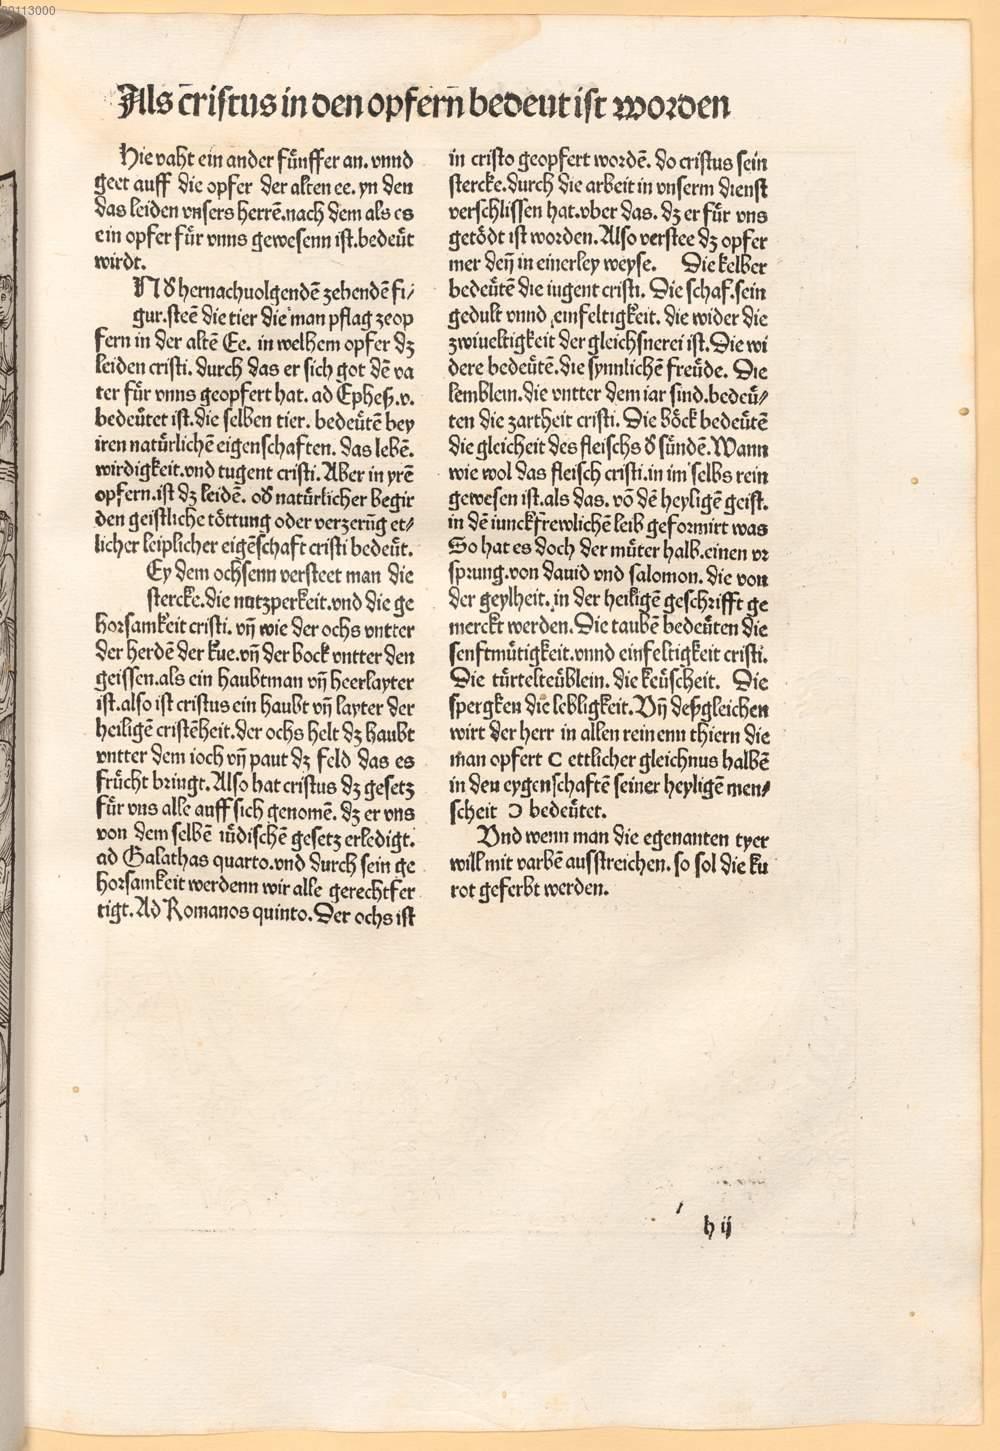 00113000
Als cr̄istus in den opfern̄ bedeut ist worden
Hie vaht ein ander fu̎nffer an. vnnd
geet auff die opfer der alten ee. yn den
das leiden vnsers herrē.nach dem als es
ein opfer fu̎r vnns gewesenn ist.bedeu̎t
wirdt.
hernachuolgendē zehendē fi/
gur.steē die tier die man pflag zeop
fern in der altē Ee. in welhem opfer dʒ
leiden cristi. durch das er sich got dē va
ter fu̎r vnns geopfert hat. ad Epheß.v.
bedeu̎tet ist.die selben tier. bedeu̎tē bey
iren natu̎rlichē eigenschaften. das lebē.
wirdigkeit.vnd tugent cristi. Aber in yrē
opfern.ist dʒ leidē. oð natu̎rlicher begir
den geistliche töttung oder verzerūg et/
licher leiplicher eigēschaft cristi bedeu̎t.
Ey dem ochsenn versteet man die
stercke.die nutzperkeit.vnd die ge
horsamkeit cristi. vn̄ wie der ochs vntter
der herdē der kue.vn̄ der bock vntter den
geissen.als ein haubtman vn̄ heerlayter
ist.also ist cristus ein haubt vn̄ layter der
heiligē cristēheit.der ochs helt dʒ haubt
vntter dem ioch vn̄ paut dʒ feld das es
fru̎cht bringt. Also hat cristus dʒ gesetz
fu̎r vns alle auff sich genomē. dʒ er vns
von dem selbē iu̎dischē gesetz erledigt.
ad Galathas quarto.vnd durch sein ge
horsamkeit werdenn wir alle gerechtfer
tigt. Ad Romanos quinto. Der ochs ist
in cristo geopfert wordē. do cristus sein
stercke.durch die arbeit in vnserm dienst
verschlissen hat.vber das. dʒ er fu̎r vns
getödt ist worden. Also verstee dʒ opfer
mer den̄ in einerley weyse. Die kelber
bedeu̎tē die iugent cristi. Die schaf.sein
gedult vnnd einfeltigkeit. die wider die
zwiueltigkeit der gleichsnerei ist. Die wi
dere bedeu̎tē. die synnlichē freu̎de. Die
lemblein.die vntter dem iar sind.bedeu̎/
ten die zartheit cristi. Die böck bedeu̎tē
die gleicheit des fleischs ð su̎ndē. Wann
wie wol das fleisch cristi.in im selbs rein
gewesen ist.als das. vō dē heyligē geist.
in dē iunckfrewlichē leib geformirt was
So hat es doch der mu̎ter halb.einen vr
sprung.von dauid vnd salomon. die von
der geylheit. in der heiligē geschrifft ge
merckt werden. Die taubē bedeu̎ten die
senftmu̎tigkeit.vnnd einfeltigkeit cristi.
Die tu̎rtelteu̎blein. die keu̎scheit. Die
spergken die lebligkeit. Vn̄ deßgleichen
wirt der herr in allen reinenn thiern die
man opfert C ettlicher gleichnus halbē
in den eygenschaftē seiner heyligē men/
scheit Ɔ bedeu̎tet.
Vnd wenn man die egenanten tyer
will mit varbē ausstreichen. so sol die ku
rot geferbt werden.
h ij